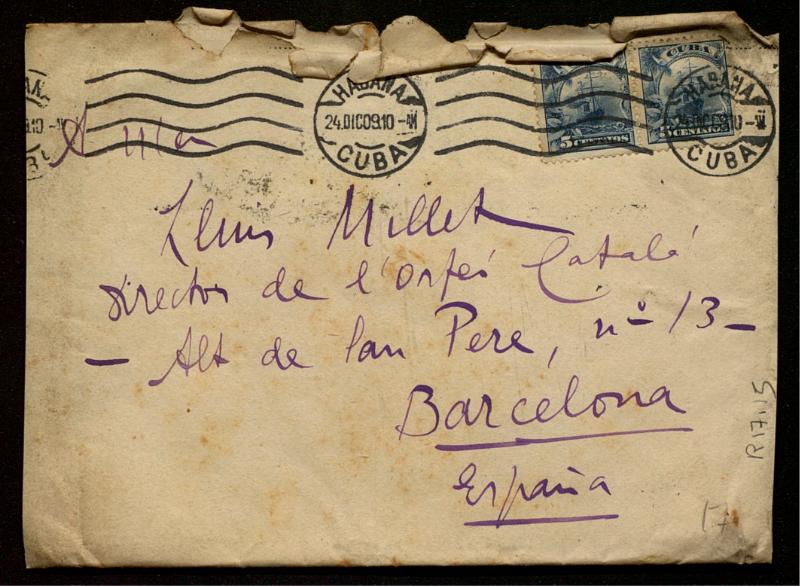 HABANA
24.DIC09.10-M
CUBA
CUBA
5 CENTAVOS
5 CENTAVOS
HABANA
CUBA
A
Lluis Millet
Director de l'Orfeó Catalá
— Alt de San Pere, nº 13 —
Barcelona
España
R.17.15
17